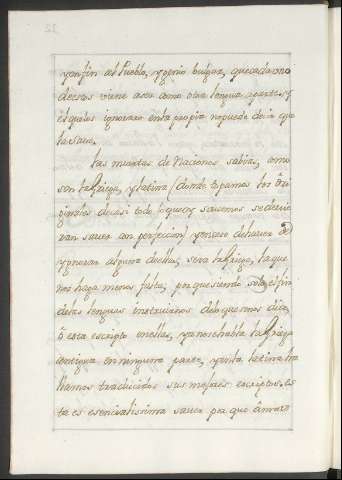 y en fin al Pueblo, y genio bulgar, que cada uno
de esos viene a ser como otra lengua aparte, y
el que los ignorare en la propia no puede decir que
la save.
las muertas de Naciones sabias, como
son la Griega, y latina (donde topamos los ori
ginales de casi todo lo que oy savemos se devie
ran saver con perfeccion) y en caso de haver de
ygnorar alguna de ellas, sera la Griega, la que
nos haga menos falta, porque siendo solo el fin
de las lenguas instruirnos de lo que nos dice,
ô esta escripto en ellas, y a no se habla la Griega
antigua en ninguna parte, y en la latina ha
llamos traducidos sus mejores escriptos, es
ta es esencialissima saver pa que